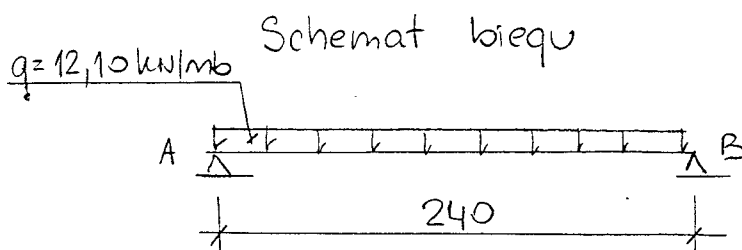 Schemat biegu
q=12,10 kN/mb
A
B
240